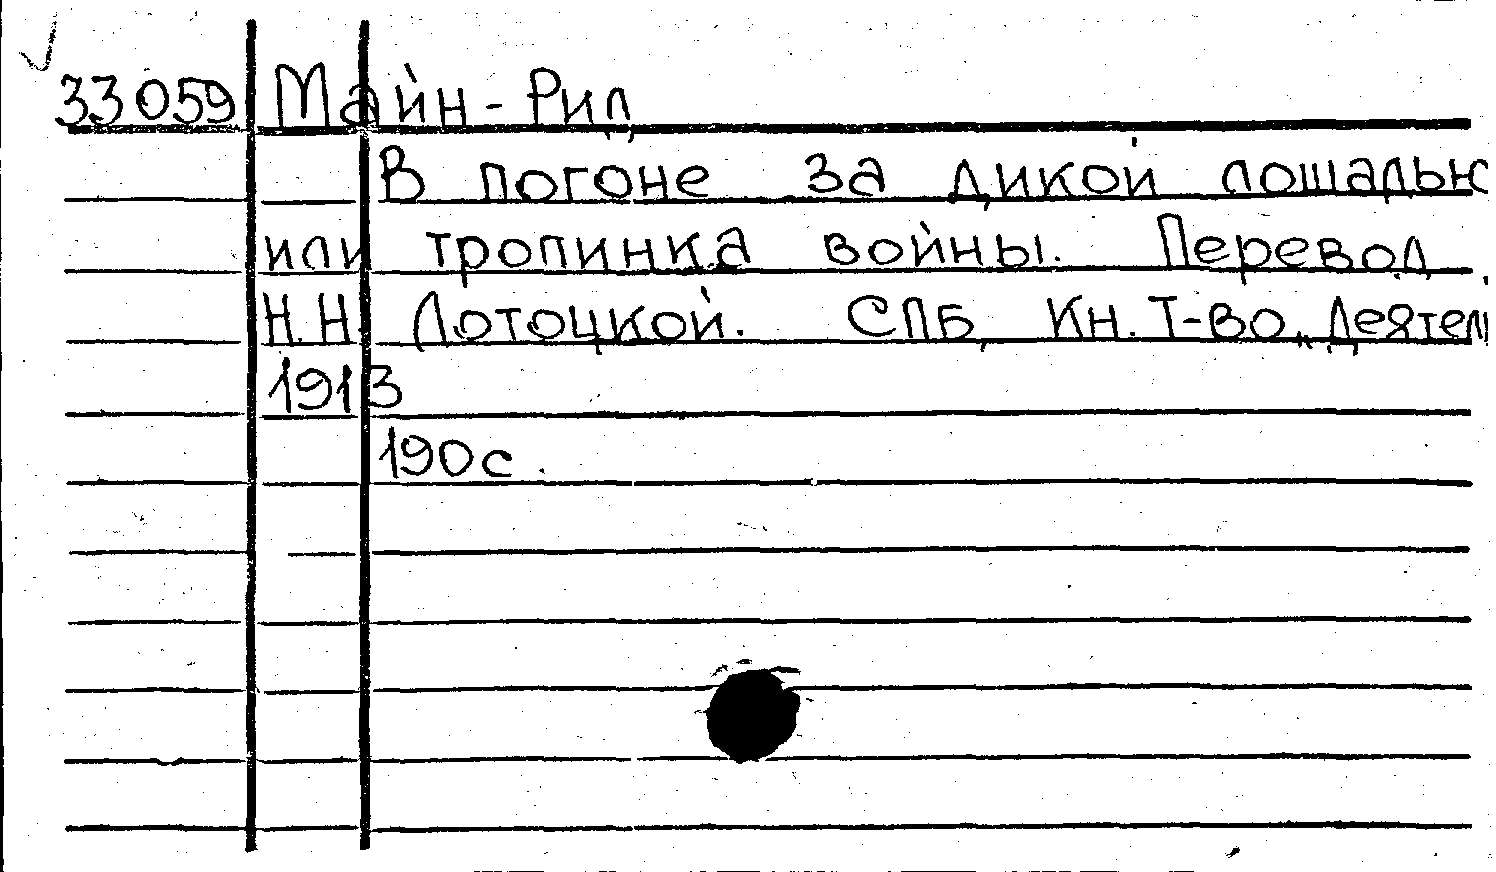 33059 Майн-Рид
В погоне за дикой лошадью
или тропинка войны. Перевод
Н.Н. Лотоцкой. СПБ, Кн. Т-во „Деятел
1913
190с.